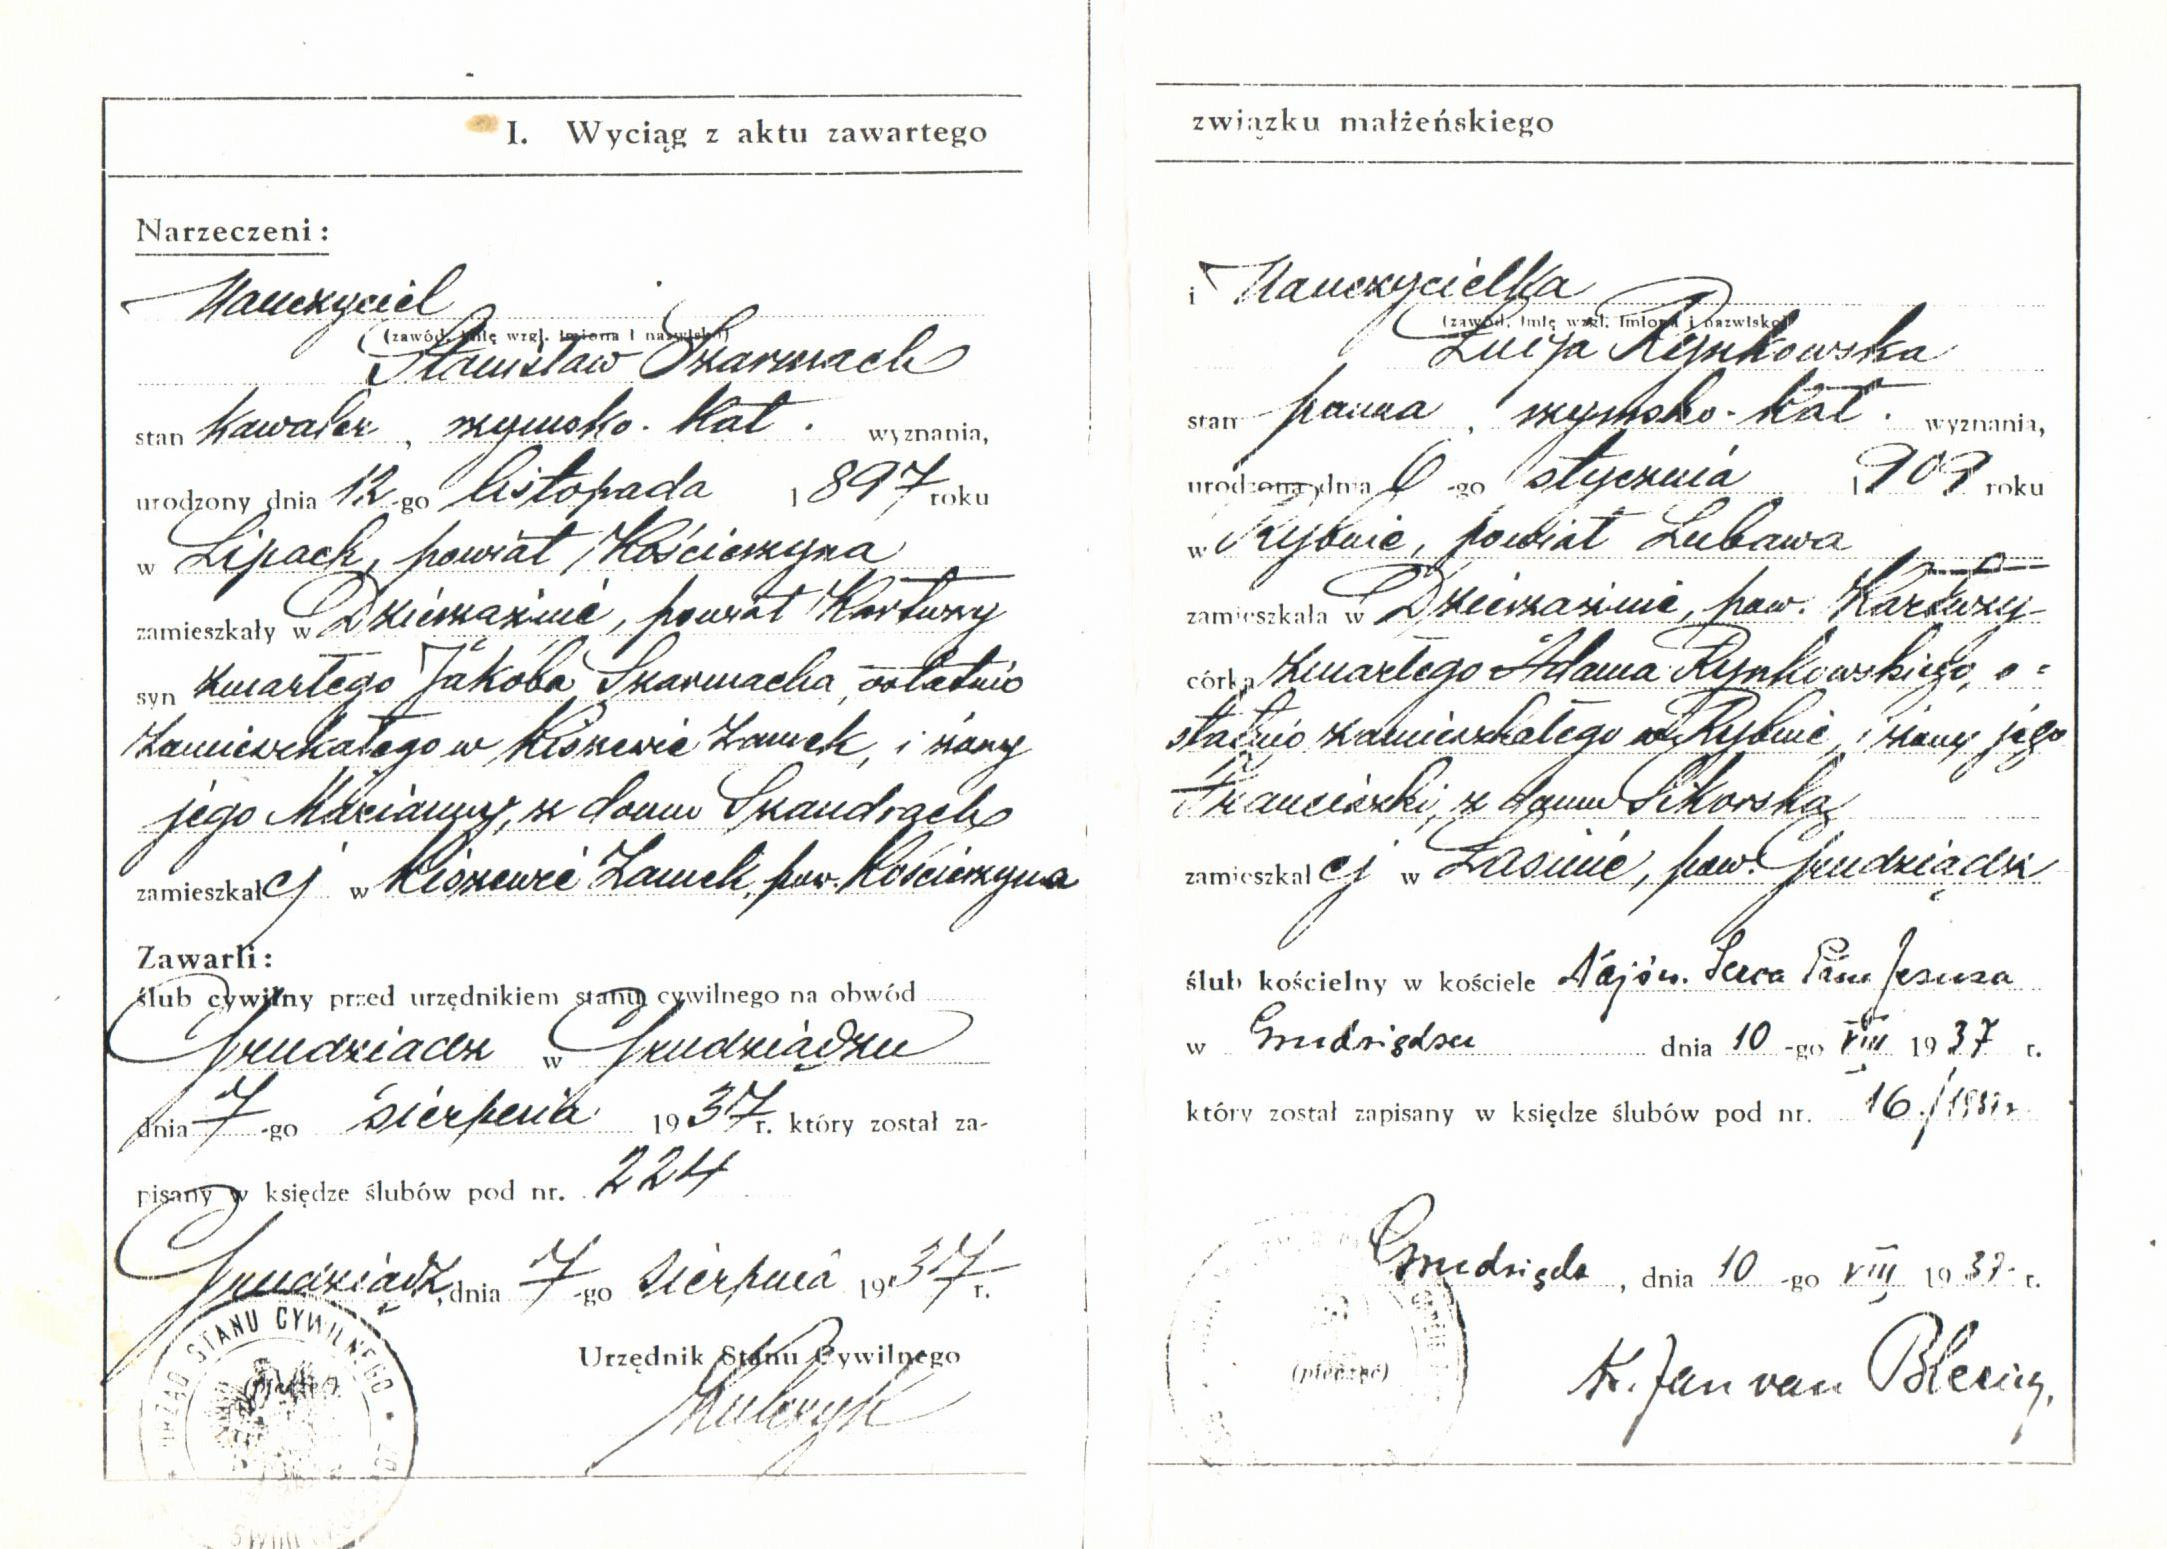 I. Wyciąg z aktu zawartego
Narzeczeni:
Nauczyciel
(zawód, imię wzgl. imiona i nazwisko)
Stanisław Szarmach
stan kawaler, rzymsko-kat. wyznania,
urodzony dnia 12-go listopada 1897 roku
w Lipach, powiat Kościerzyna
zamieszkały w Dzierżążnie, powiat Kartuzy
syn zmarłego Jakóba Szarmacha, ostatnio
zamieszkałego w Kiszewie Zamek, i żony
jego Marianny, z domu Szandrach
zamieszkałej w Kiszewie Zamek, pow. Kościerzyna
Zawarli:
ślub cywilny przed urzędnikiem stanu cywilnego na obwód
Grudziądz w Grudziądzu
dnia 7-go sierpnia 1937 r. który został za-
pisany w księdze ślubów pod nr. 224
Grudziądz, dnia 7-go sierpnia 1937 r.
Urzędnik Stanu Cywilnego
(pieczęć)
URZĄD STANU CYWILNEGO
związku małżeńskiego
i Nauczycielka
(zawód, imię wzgl. imiona i nazwisko)
Lucja Rynkowska
stan panna, rzymsko-kat. wyznania,
urodzona dnia 6-go stycznia 1909 roku
w Rybnie, powiat Lubawa
zamieszkała w Dzierżążnie, pow. Kartuzy
córka zmarłego Adama Rynkowskiego, o-
statnio zamieszkałego w Rybnie, i żony jego
Franciszki, z domu Sikorska
zamieszkałej w Łasinie, pow. Grudziądz
ślub kościelny w kościele Najśw. Serca Pana Jezusa
w Grudziądzu dnia 10-go VIII 1937 r.
który został zapisany w księdze ślubów pod nr. 16./1937r.
Grudziądz, dnia 10-go VIII 1937 r.
(pieczęć)
X. Jan van Blericq.